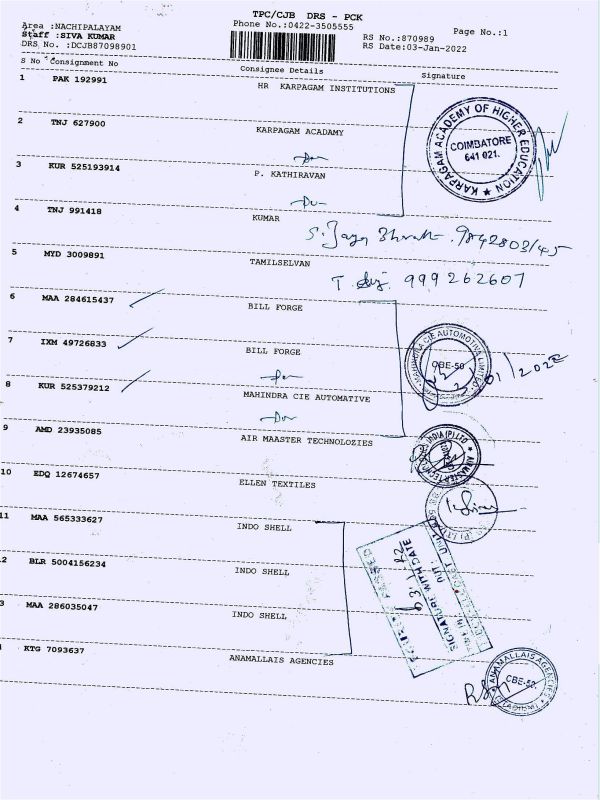 TPC/CJB DRS - PCK
Area :NACHIPALAYAM
Phone No.:0422-3505555
Page No.:1
Staff :SIVA KUMAR
RS No.:870989
DRS. No. :DCJB87098901
RS Date:03-Jan-2022
S No Consignment No Consignee Details Signature
1 PAK 192991 HR KARPAGAM INSTITUTIONS
KARPAGAM ACADEMY OF HIGHER EDUCATION
COIMBATORE
641 021.
2 TNJ 627900 KARPAGAM ACADAMY
3 KUR 525193914 P. KATHIRAVAN
4 TNJ 991418 KUMAR
5 MYD 3009891 TAMILSELVAN
999262607
6 MAA 284615437 BILL FORGE
7 IXM 49726833 BILL FORGE
MAHINDRA CIE AUTOMOTIVE LIMITED
CBE-50
8 KUR 525379212 MAHINDRA CIE AUTOMATIVE
9 AMD 23935085 AIR MAASTER TECHNOLOZIES
10 EDQ 12674657 ELLEN TEXTILES
11 MAA 565333627 INDO SHELL
SIGNATURE WITH DATE
2 BLR 5004156234 INDO SHELL
3 MAA 286035047 INDO SHELL
KTG 7093637 ANAMALLAIS AGENCIES
ANAMALLAIS AGENCIES
CBE-52.